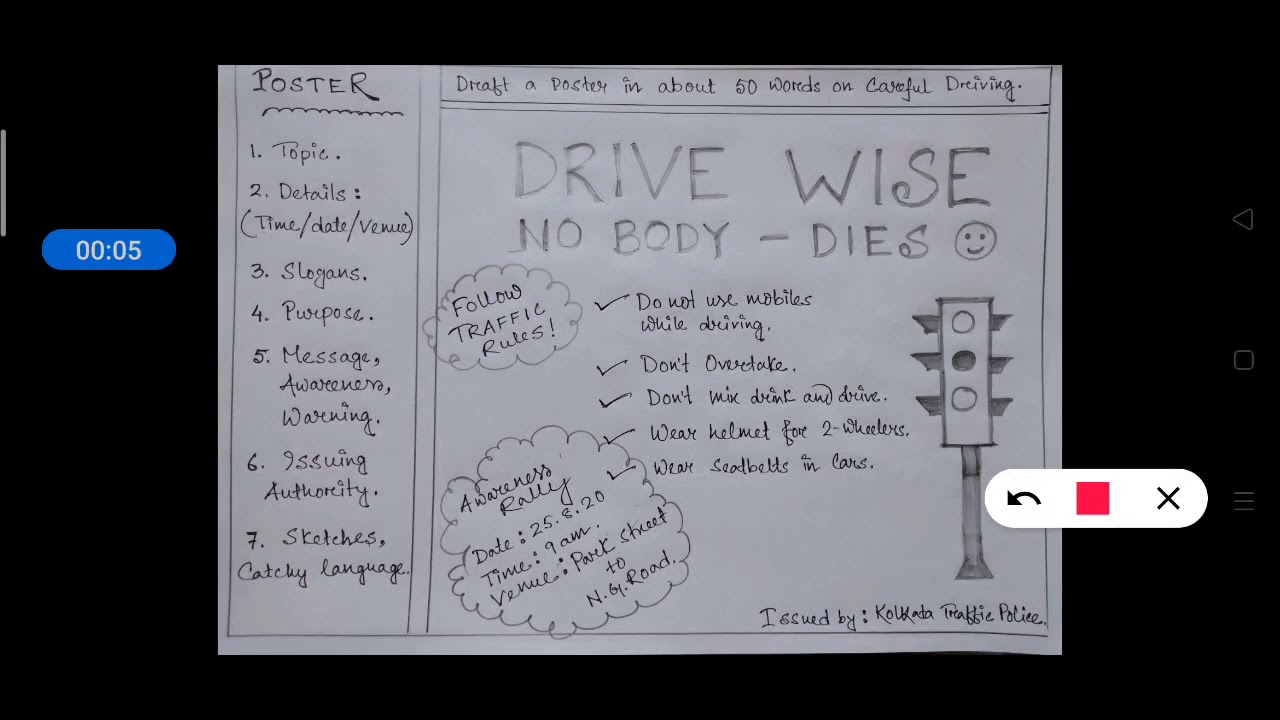 POSTER
1. Topic.
2. Details:
(Time/date/Venue)
3. Slogans.
4. Purpose.
5. Message,
Awareness,
Warning.
6. Issuing
Authority.
7. Sketches,
Catchy language.
Draft a Poster in about 50 Words on Careful Driving.
DRIVE WISE
NO BODY - DIES
FOLLOW
TRAFFIC
Rules!
Do not use mobiles
while driving.
Don't Overtake.
Don't mix drink and drive.
Wear helmet for 2-wheelers.
Wear Seatbelts in Cars.
Awareness
Rally
Date: 25.8.20
Time: 9 am.
Venue: Park Street
to
N.G. Road.
Issued by: Kolkata Traffic Police.
00:05